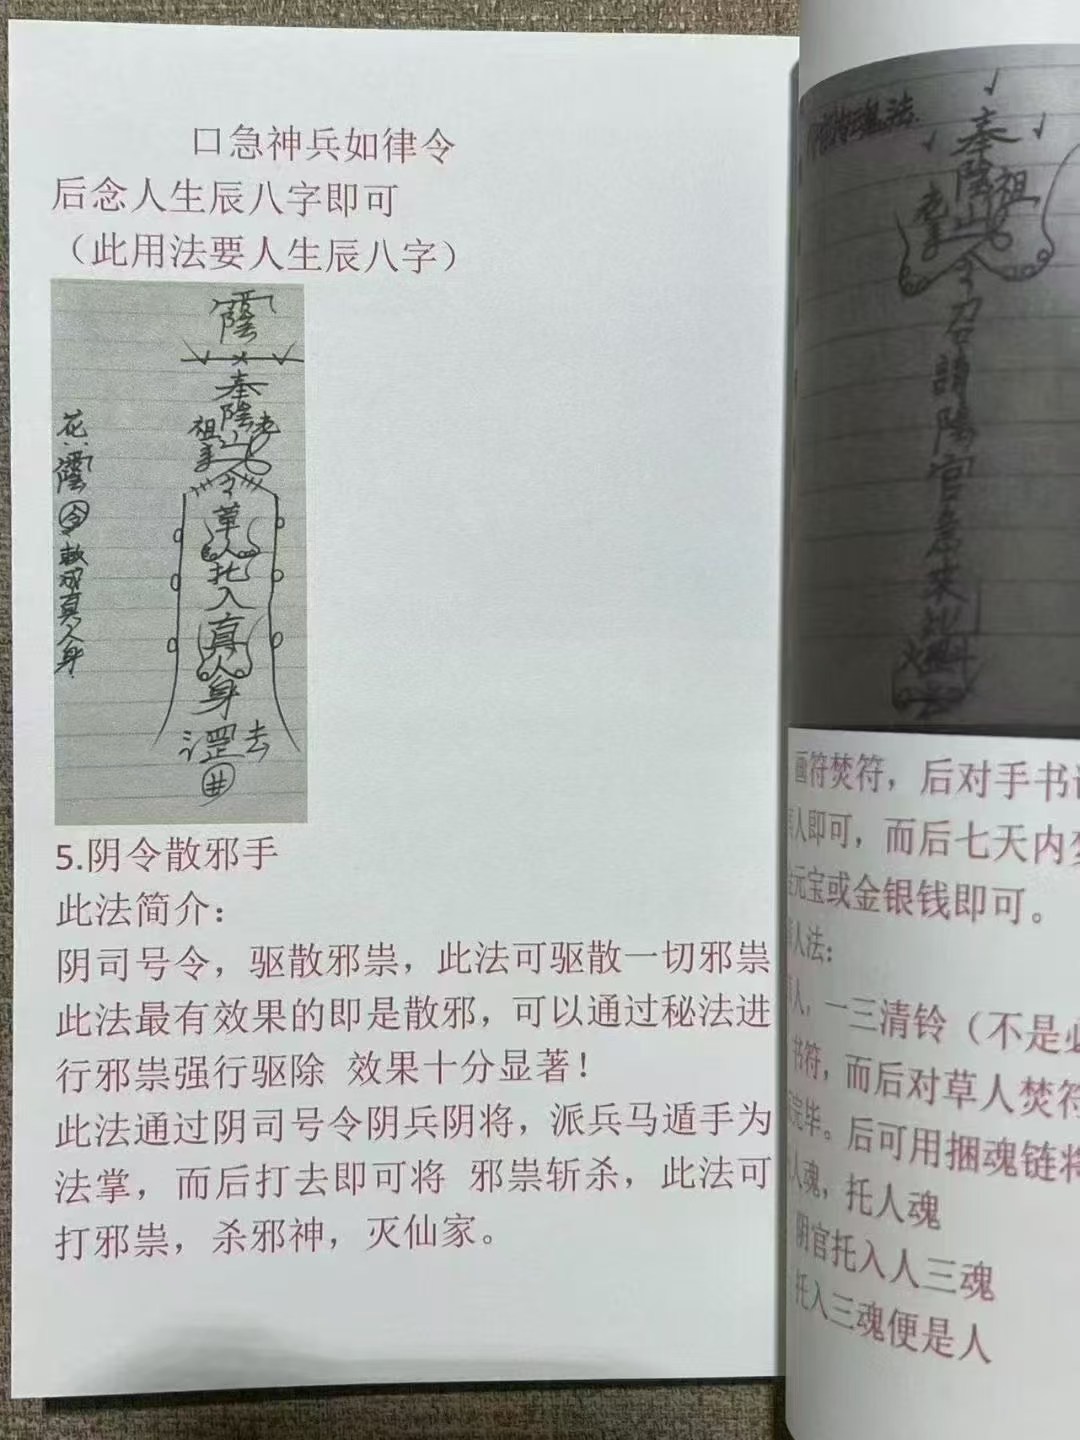 口急神兵如律令
后念人生辰八字即可
（此用法要人生辰八字）
奉陰山令
祖
老
草人托入真人身
罡
去
井
花
令
敕成真人身
5.阴令散邪手
此法简介：
阴司号令，驱散邪祟，此法可驱散一切邪祟
此法最有效果的即是散邪，可以通过秘法进
行邪祟强行驱除 效果十分显著！
此法通过阴司号令阴兵阴将，派兵马遁手为
法掌，而后打去即可将 邪祟斩杀，此法可
打邪祟，杀邪神，灭仙家。
魂法
奉陰山令召請陽官
祖
来
画符焚符，后对手书
人即可，而后七天内
元宝或金银钱即可。
人法：
人，一三清铃（不是
书符，而后对草人焚符
完毕。后可用捆魂链将
人魂，托人魂
阴官托入人三魂
托入三魂便是人